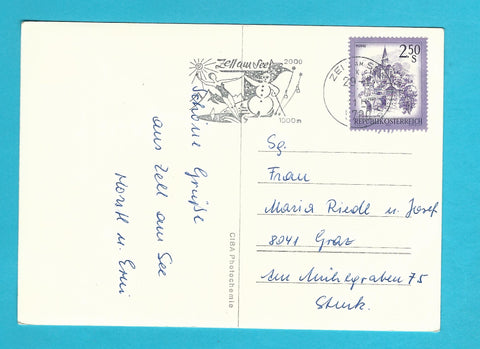 Zell am See
2000
1000 m
2.50
S
REPUBLIK ÖSTERREICH
Schöne Grüße
aus Zell am See
Horst u. Erni
CIBA Photochemie
Sg.
Frau
Maria Riedl u. Josef
8041 Graz
Am Mühlgraben 75
Stmk.